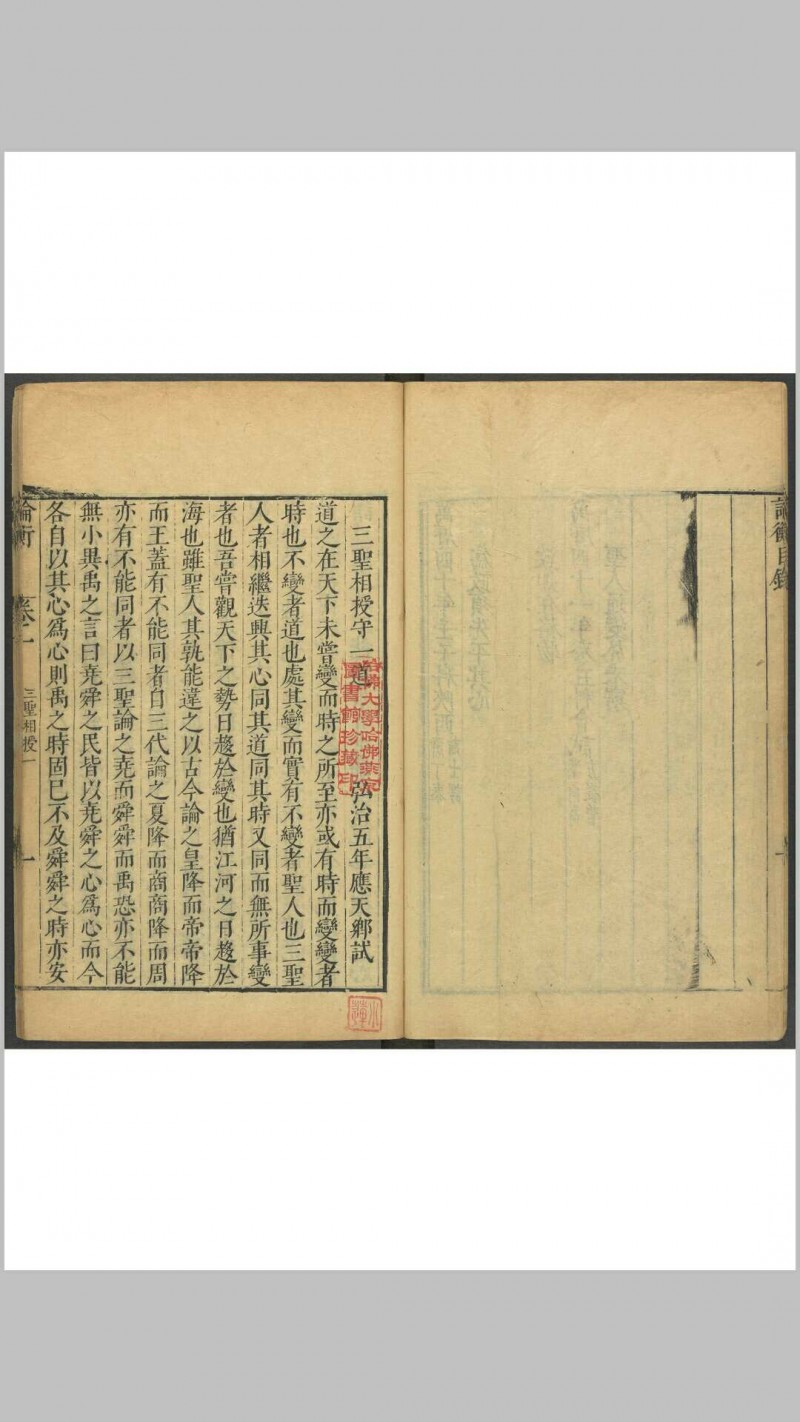 論衡目錄
三聖相授守一道 弘治五年應天鄉試
道之在天下未嘗變而時之所至亦或有時而變變者
時也不變者道也處其變而實有不變者聖人也三聖
人者相繼迭興其心同其道同其時又同而無所事變
者也吾嘗觀天下之勢日趨於變也猶江河之日趨於
海也雖聖人其孰能違之以古今論之皇降而帝帝降
而王蓋有不能同者自三代論之夏降而商商降而周
亦有不能同者以三聖論之堯而舜舜而禹恐亦不能
無小異禹之言曰堯舜之民皆以堯舜之心爲心而今
各自以其心爲心則禹之時固已不及舜舜之時亦安
論衡 卷一 三聖相授一 一
哈佛大學哈佛燕京
圖書館珍藏印